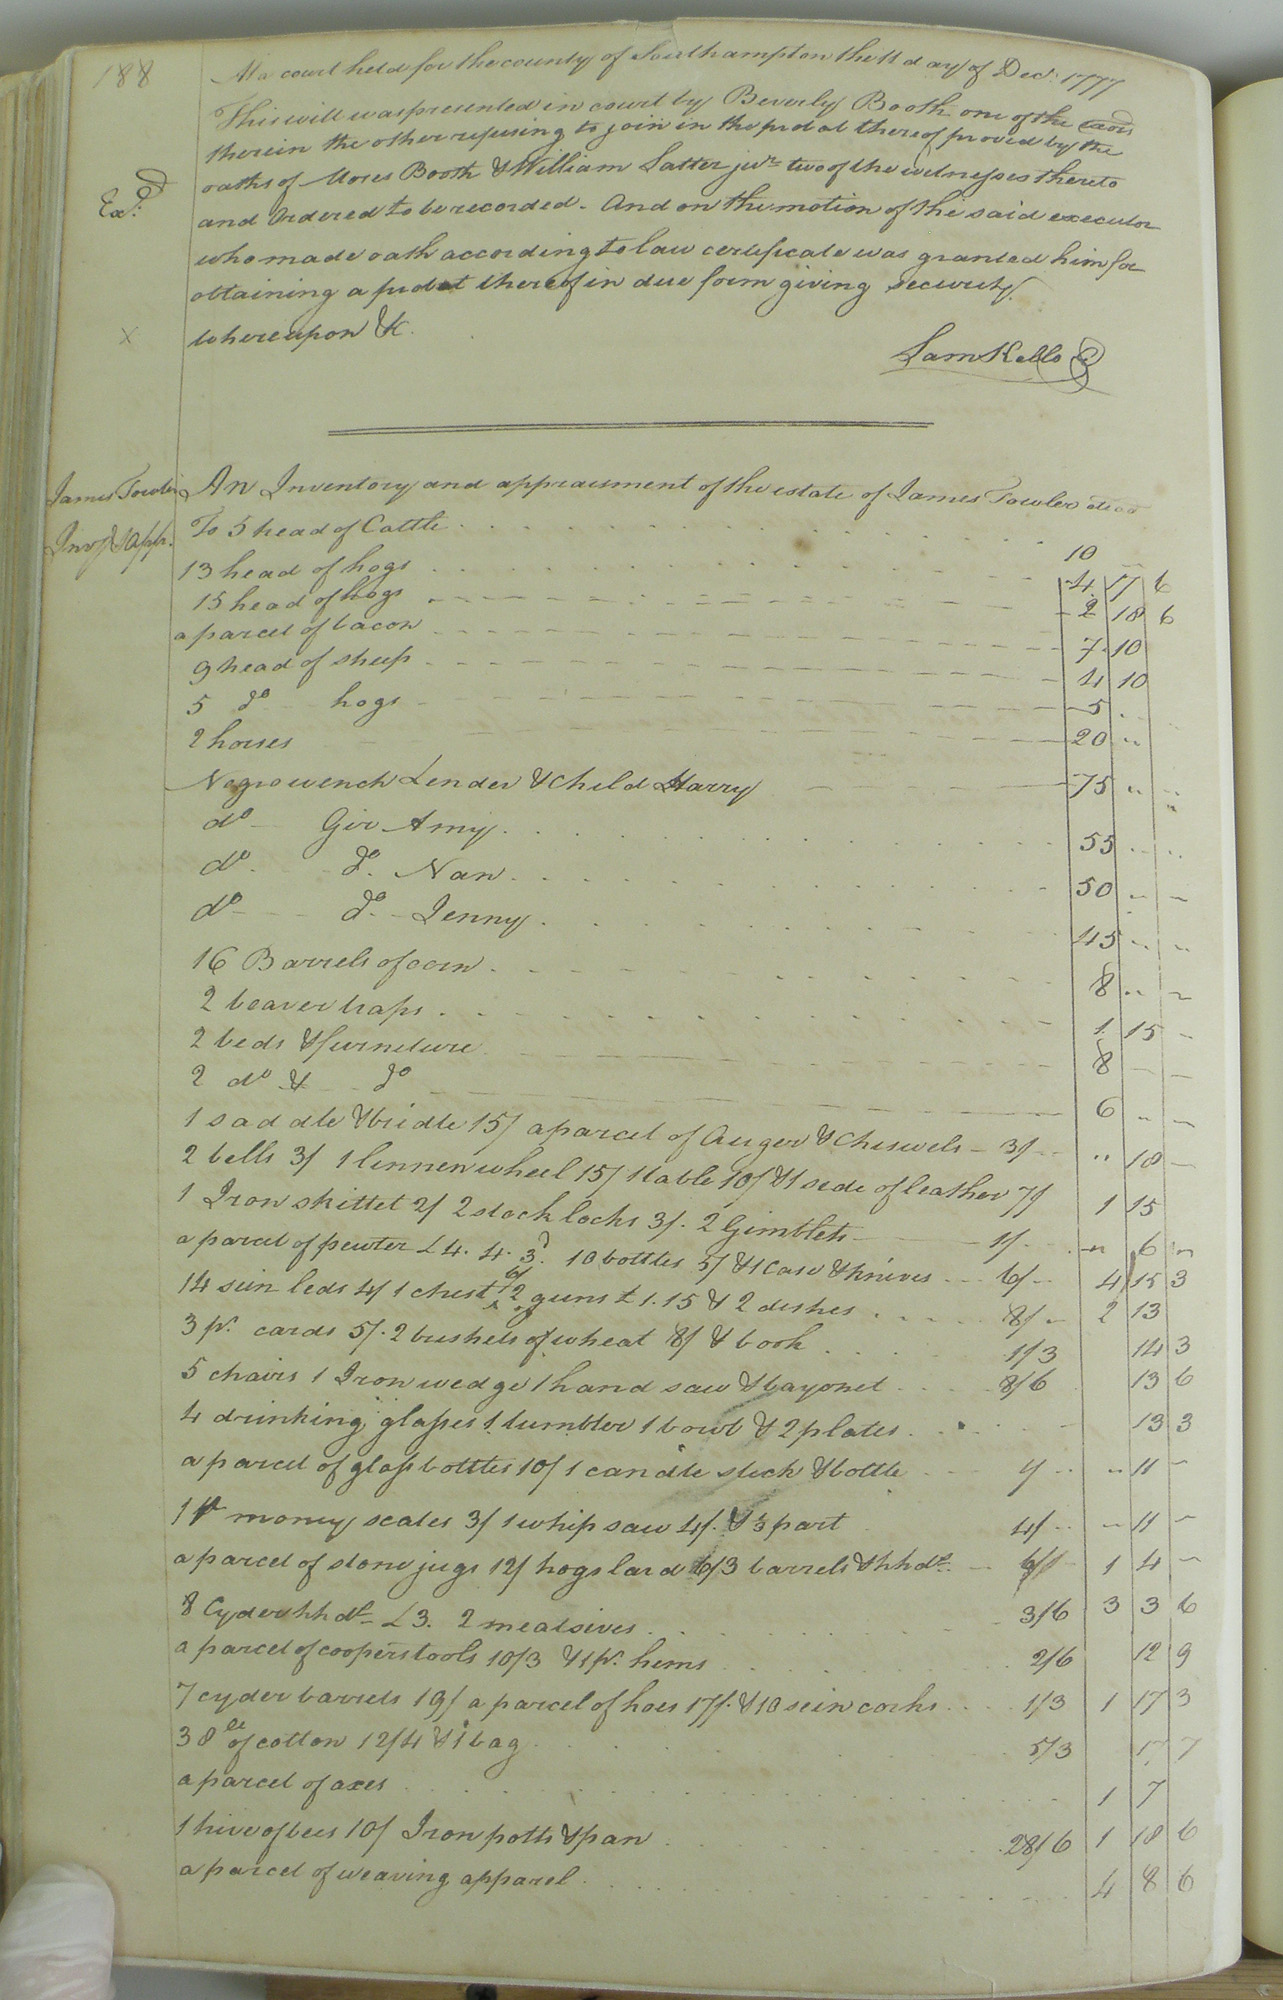 188
At a court held for the county of Southampton the 11 day of Decr. 1777
This will was presented in court by Beverly Booth one of the exors
therein the other refusing to join in the probat thereof proved by the
oaths of Moses Booth & William Latter junr. two of the witnesses thereto
Exd.
and Ordered to be recorded. And on the motion of the said executor
who made oath according to law certificate was granted him for
obtaining a probat thereof in due form giving security.
x
whereupon &c.
Sam Kello C
James Fowler An Inventory and appraisment of the estate of James Fowler decd
Invy & Appt. To 5 head of Cattle 10
13 head of hogs 4 17 6
15 head of hogs 2 18 6
a parcel of bacon 7 10
9 head of sheep 4 10
5 do hogs 5
2 horses 20 "
Negro wench Lender & Child Harry 75 " "
do Gir Amy 55
do. do. Nan 50
do do. Jenny 45 " "
16 Barrels of corn 8 "
2 beaver traps 1 15
2 beds & furneture 8
2 do & do 6 "
1 saddle & bridle 15/ a parcel of Auger & Cheswels 3/ " 18
2 bells 3/ 1 linnen wheel 15/ 1 table 10/ & 1 side of leather 7/ 1 15
1 Iron skittet 2/ 2 stock locks 3/. 2 Gimblets 1/ " 6 "
a parcel of pewter £4. 4. 3d. 10 bottles 5/ & 1 Case & knives 6/ 4 15 3
14 sein leds 4/ 1 chest 6/ 2 guns £1.15 & 2 dishes 8/ 2 13
3 pr. cards 5/. 2 bushels of wheat 8/ & book 1/3 14 3
5 chairs 1 Iron wedge 1 hand saw & bayonet 8/6 13 6
4 drinking glasses 1 tumbler 1 bowl & 2 plates 13 3
a parcel of glass bottles 10/ 1 candle stick & bottle 1/ " 11
1 pr money scales 3/ 1 whip saw 4/. & 3 part 4/ 11
a parcel of stone jugs 12/ hogs lard 6/ 3 barrels & hhds. 6/ 1 4
8 Cyder hhds £3. 2 meal sives 3/6 3 3 6
a parcel of coopers tools 10/3 & 1 pr. hems 2/6 12 9
7 cyder barrels 19/ a parcel of hoes 17/. & 10 sein corks 1/3 1 17 3
38 le of cotton 12/4 & 1 bag 5/3 17 7
a parcel of axes 1 7
1 hive of bees 10/ Iron potts & pan 28/6 1 18 6
a parcel of weaving apparel 4 8 6